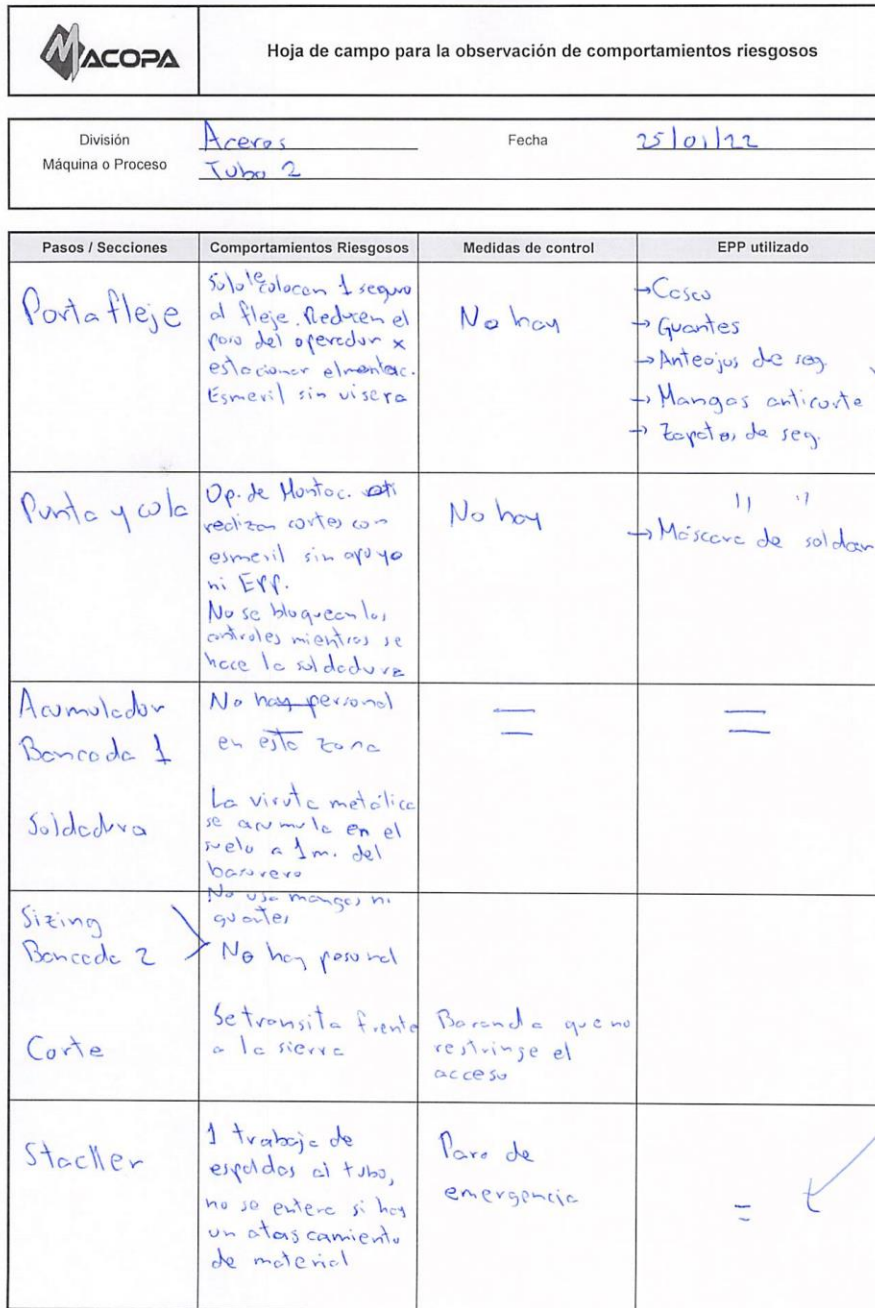 MACOPA
Hoja de campo para la observación de comportamientos riesgosos
División Aceros Fecha 25/01/22
Máquina o Proceso Tubo 2
Pasos / Secciones Comportamientos Riesgosos Medidas de control EPP utilizado
Porta fleje
Solo le colocan 1 seguro
al fleje. Reducen el
paso del operador x
estacionar el montac.
Esmeril sin visera
No hay
→Casco
→ Guantes
→ Anteojos de seg.
→ Mangas anticorte
→ Zapatos de seg.
Punta y cola
Op. de Montac.
realizan cortes con
esmeril sin apoyo
ni EPP.
No se bloquean los
controles mientras se
hace la soldadura
No hay
" "
→ Máscara de soldar
Acumulador
Bancada 1
No hay personal
en esta zona
=
=
Soldadura
La viruta metálica
se acumula en el
suelo a 1 m. del
basurero
No usa mangas ni
guantes
Sizing
Bancada 2
No hay personal
Corte
Se transita frente
a la sierra
Baranda que no
restringe el
acceso
Stacker
1 trabaja de
espaldas al tubo,
no se entera si hay
un atascamiento
de material
Paro de
emergencia
=